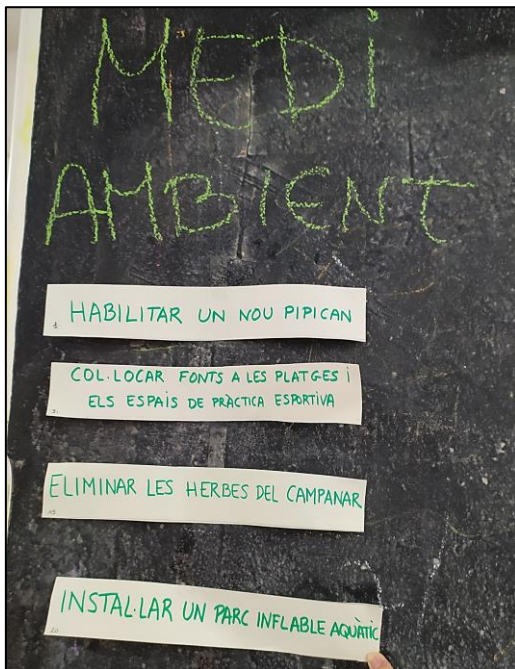 MEDI
AMBIENT
HABILITAR UN NOU PIPICAN
COL·LOCAR FONTS A LES PLATGES I
ELS ESPAIS DE PRÀCTICA ESPORTIVA
ELIMINAR LES HERBES DEL CAMPANAR
INSTAL·LAR UN PARC INFLABLE AQUÀTIC